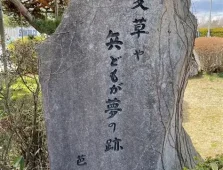 草や
兵どもが夢の跡
芭